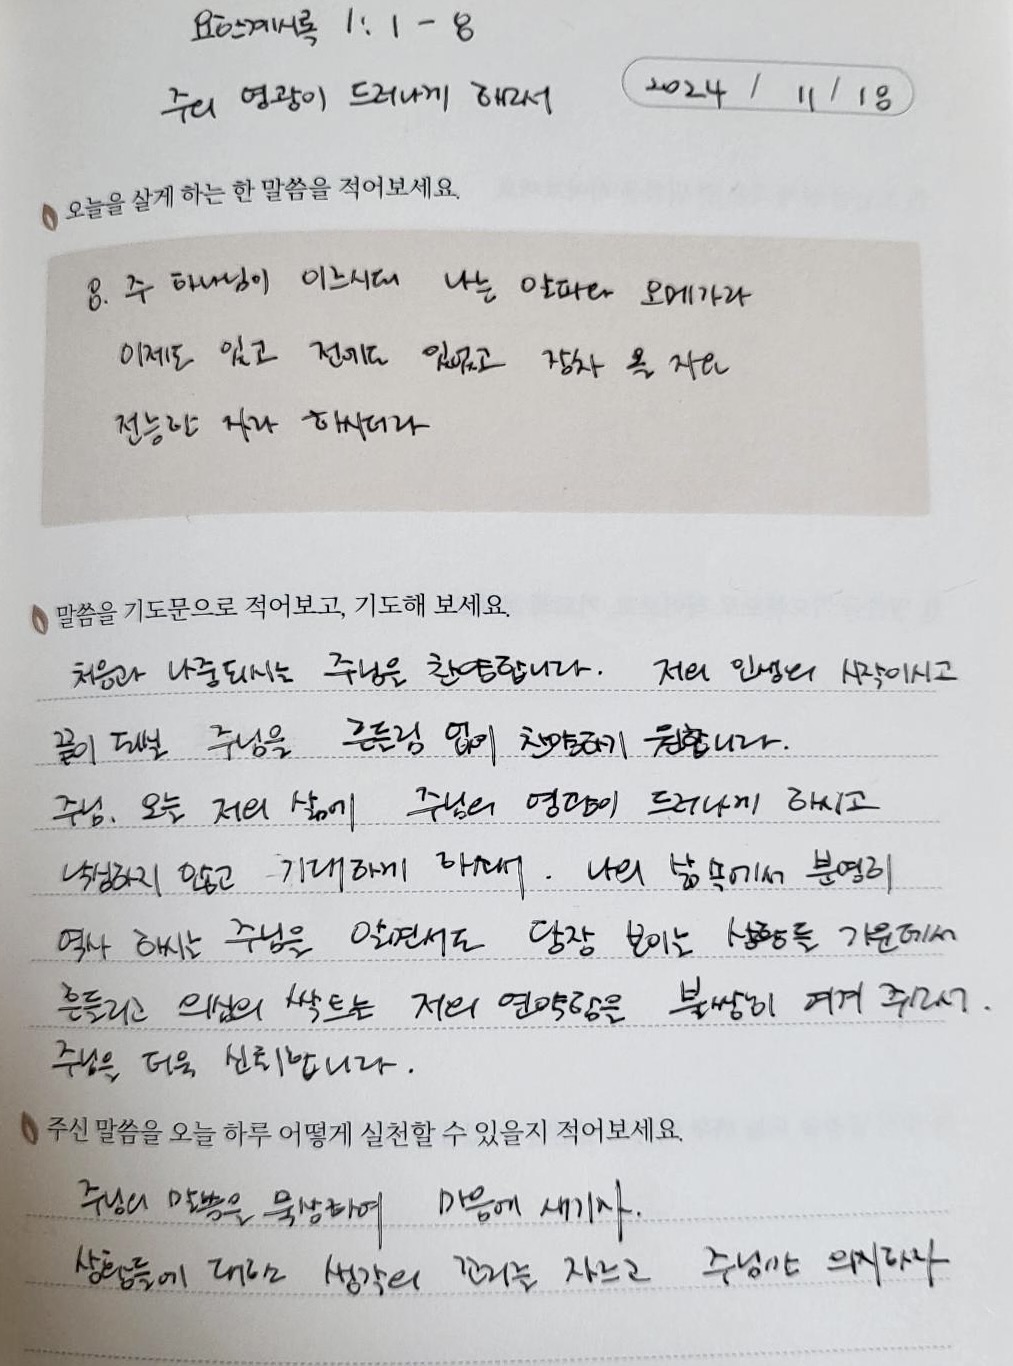 요한계시록 1:1-8
주의 영광이 드러나게 하소서
2024 / 11 / 18
오늘을 살게 하는 한 말씀을 적어보세요.
8. 주 하나님이 이르시되 나는 알파와 오메가라
이제도 있고 전에도 있었고 장차 올 자요
전능한 자라 하시더라
말씀을 기도문으로 적어보고, 기도해 보세요.
처음과 나중되시는 주님을 찬양합니다. 저의 인생의 시작이시고
끝이 되실 주님을 흔들림 없이 찬양하기 원합니다.
주님. 오늘 저의 삶에 주님의 영광이 드러나게 하시고
낙심하지 않고 기대하게 하소서. 나의 삶 속에서 분명히
역사 하시는 주님을 알면서도 당장 보이는 상황들 가운데서
흔들리고 의심의 싹트는 저의 연약함을 불쌍히 여겨 주소서.
주님을 더욱 신뢰합니다.
주신 말씀을 오늘 하루 어떻게 실천할 수 있을지 적어보세요.
주님의 말씀을 묵상하여 마음에 새기자.
상황들에 대한 생각의 꼬리를 자르고 주님만 의지하자